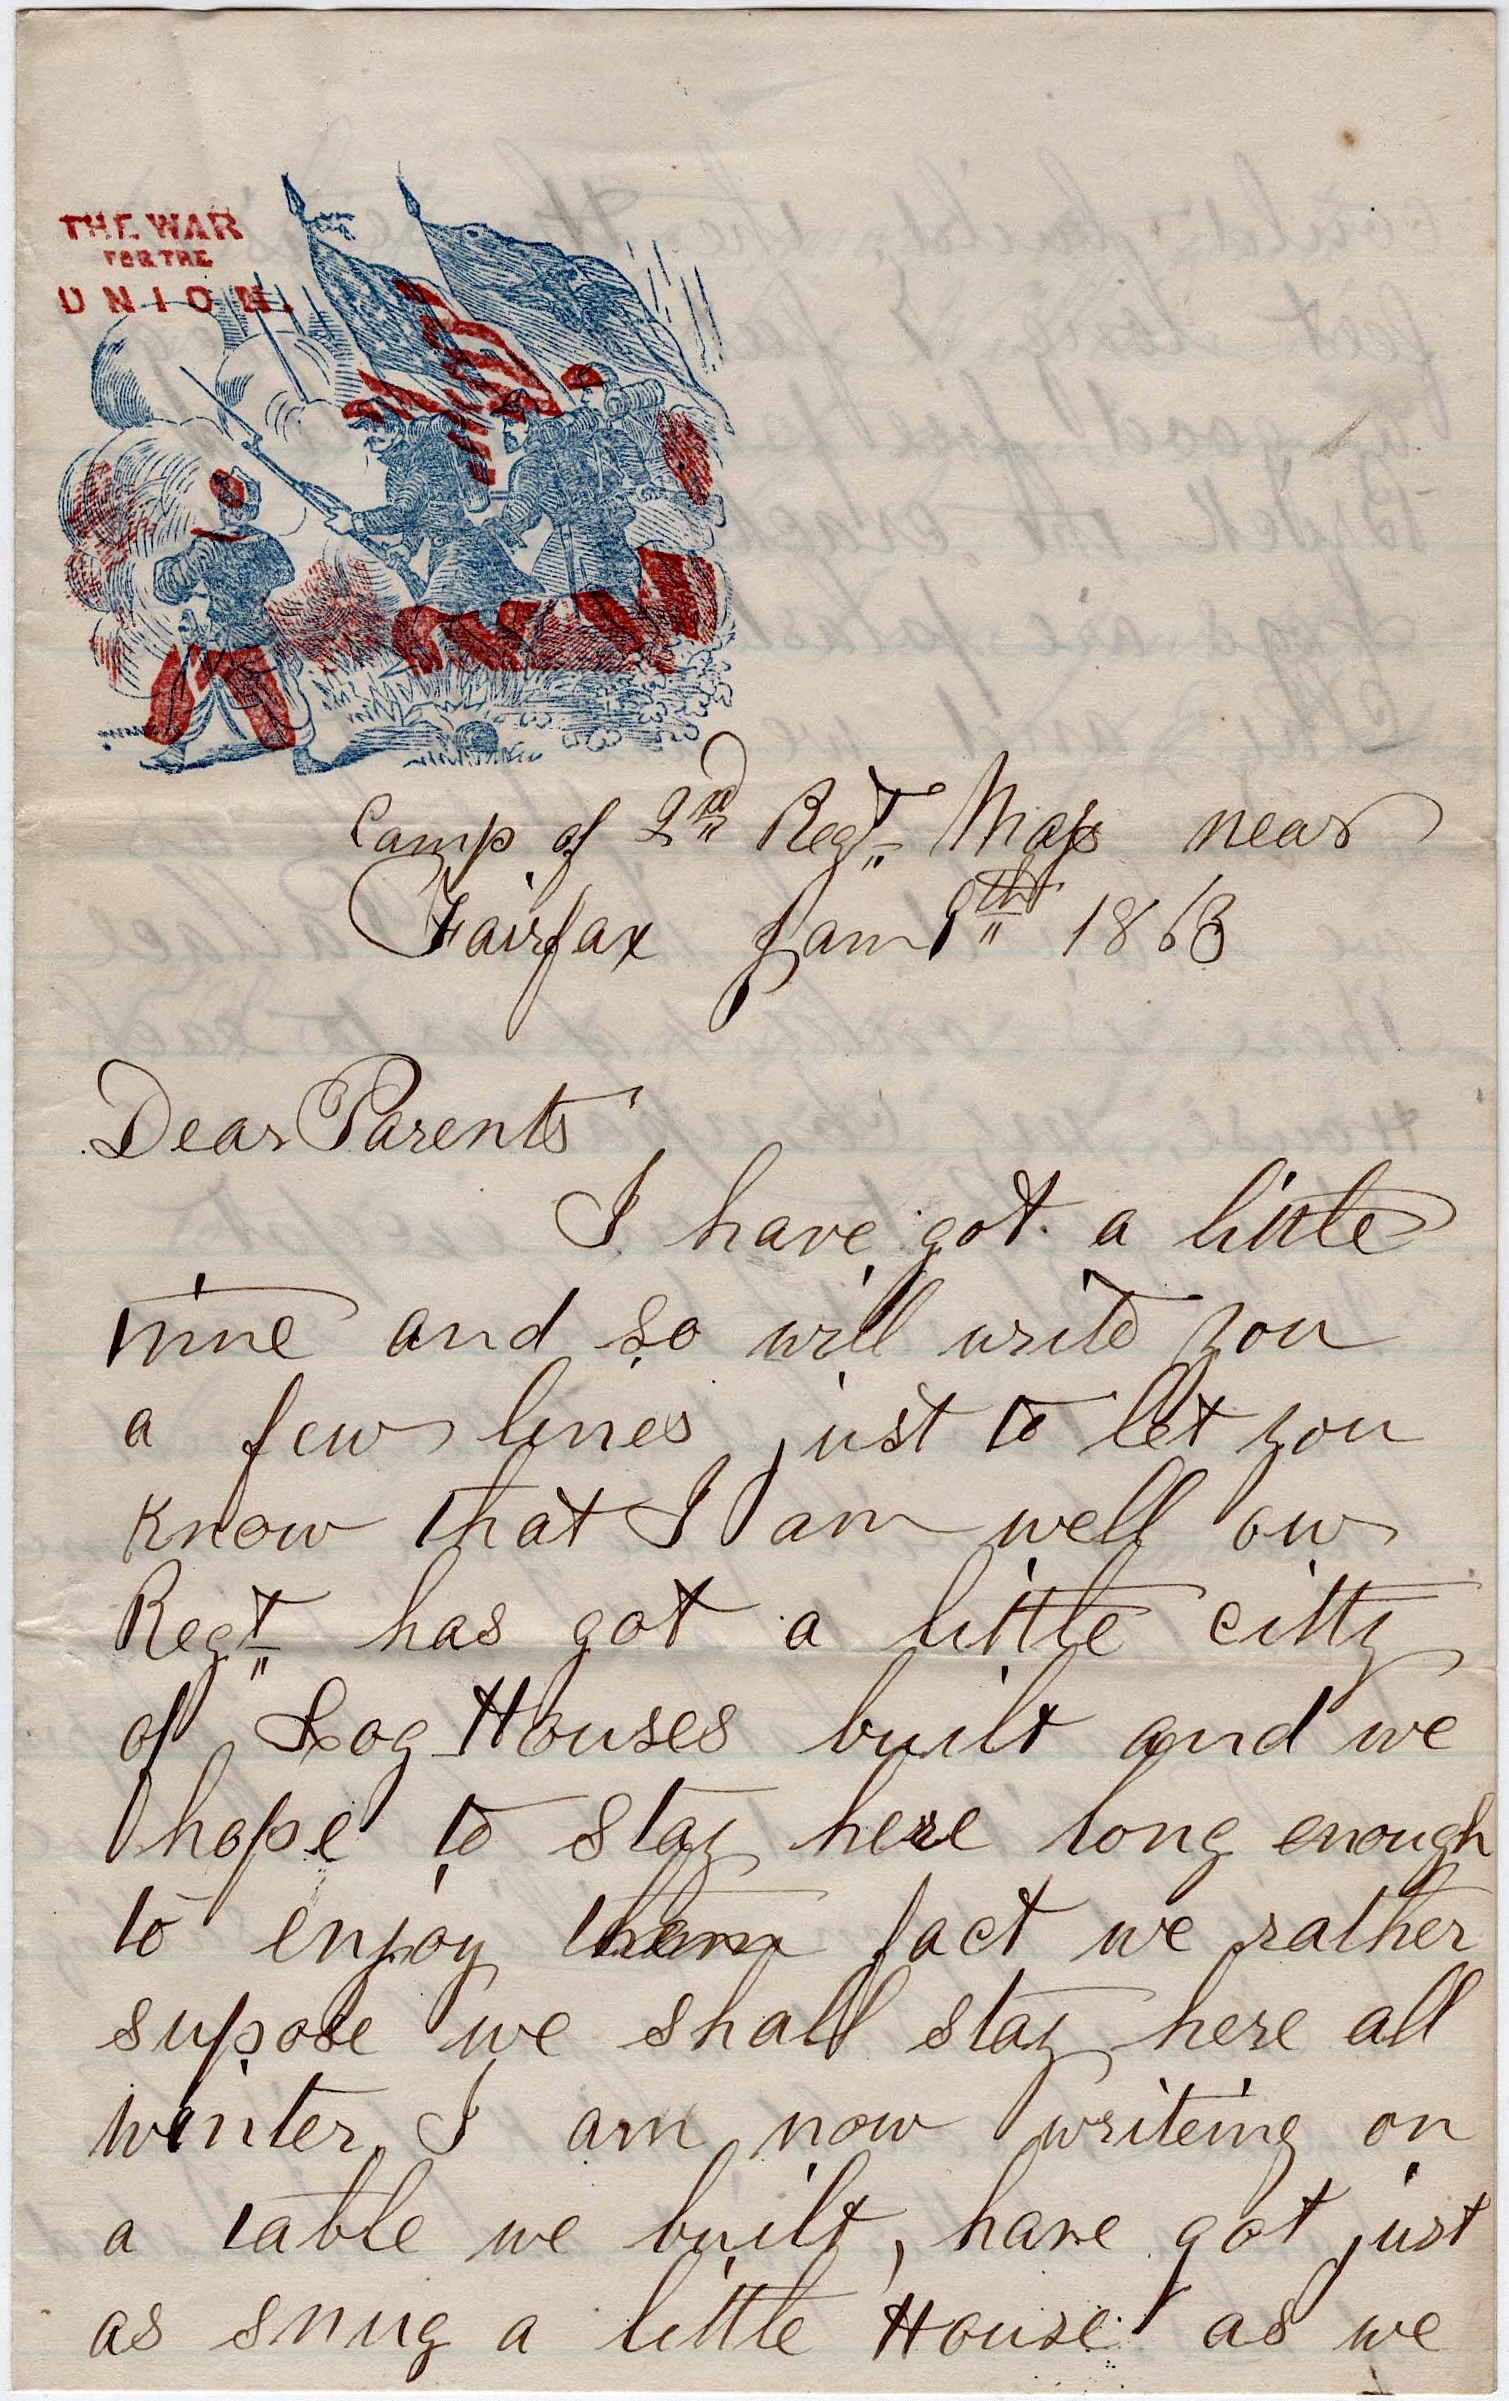 THE WAR
FOR THE
UNION.
Camp of 2nd Regt Mass near
Fairfax Jan 9th 1863
Dear Parents
I have got a little
time and so will write you
a few lines just to let you
know that I am well our
Regt has got a little citty
of Log Houses built and we
hope to stay here long enough
to enjoy them fact we rather
supose we shall stay here all
winter I am now writeing on
a table we built, have got just
as snug a little House as we